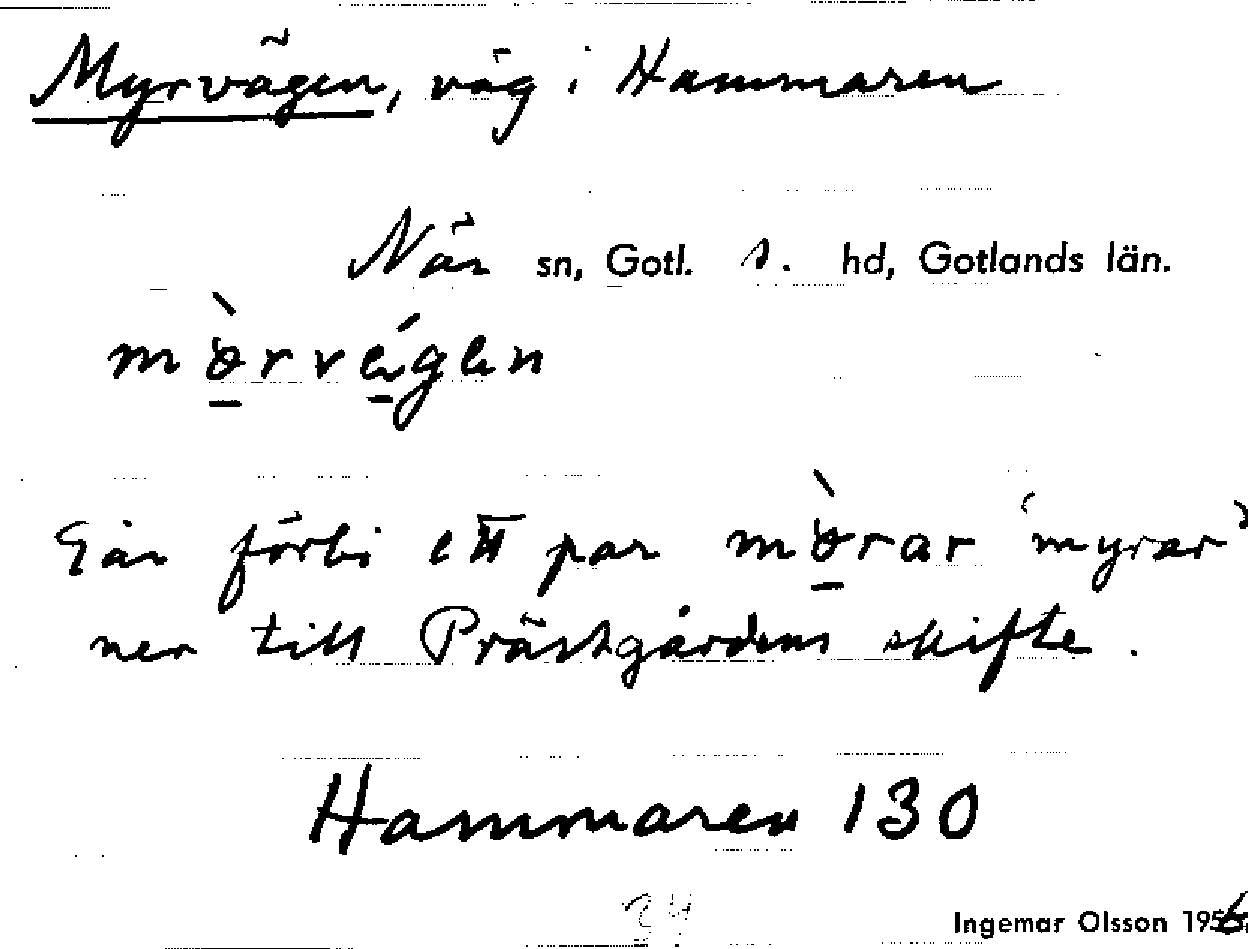 Myrvägen, väg i Hammaren
När sn, Gotl. s. hd, Gotlands län.
mòrvéigen
Går förbi ett par mòrar 'myrar'
ner till Prästgårdens skifte.
Hammaren 130
24
Ingemar Olsson 1956